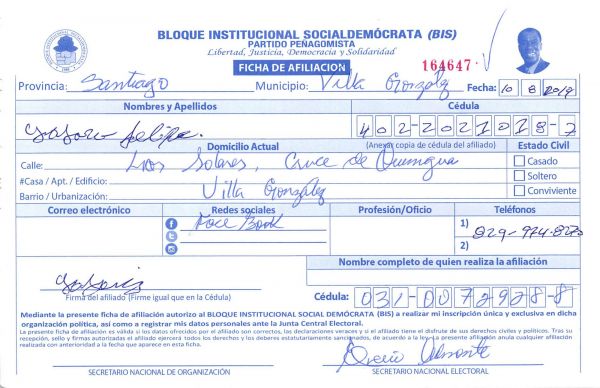 BLOQUE INSTITUCIONAL SOCIALDEMÓCRATA (BIS)
PARTIDO PEÑAGOMISTA
Libertad, Justicia, Democracia y Solidaridad
FICHA DE AFILIACIÓN
164647
Provincia: Santiago Municipio: Villa González Fecha: 10 8 2019
Nombres y Apellidos Cédula
Felipe. 402-2021018-7
Domicilio Actual (Anexar copia de cédula del afiliado) Estado Civil
Calle: Los Solares, Cruce de Quinigua Casado
#Casa / Apt. / Edificio: Soltero
Barrio / Urbanización: Villa González Conviviente
Correo electrónico Redes sociales Profesión/Oficio Teléfonos
Face Book 1) 829-974-
2)
Nombre completo de quien realiza la afiliación
Firma del afiliado (Firme igual que en la Cédula)
Cédula: 031-0072928-8
Mediante la presente ficha de afiliación autorizo al BLOQUE INSTITUCIONAL SOCIAL DEMÓCRATA (BIS) a realizar mi inscripción única y exclusiva en dicha
organización política, así como a registrar mis datos personales ante la Junta Central Electoral.
La presente ficha de afiliación es válida si los datos ofrecidos por el afiliado son correctos, las declaraciones veraces y si el afiliado tiene el disfrute de sus derechos civiles y políticos. Tras su
recepción, sello y firmas autorizadas el afiliado ejercerá todos los derechos y los deberes estatutariamente sancionados, de acuerdo a la ley. La presente afiliación anula cualquier afiliación
realizada con anterioridad a la fecha que aparece en esta ficha.
SECRETARIO NACIONAL DE ORGANIZACIÓN SECRETARIO NACIONAL ELECTORAL